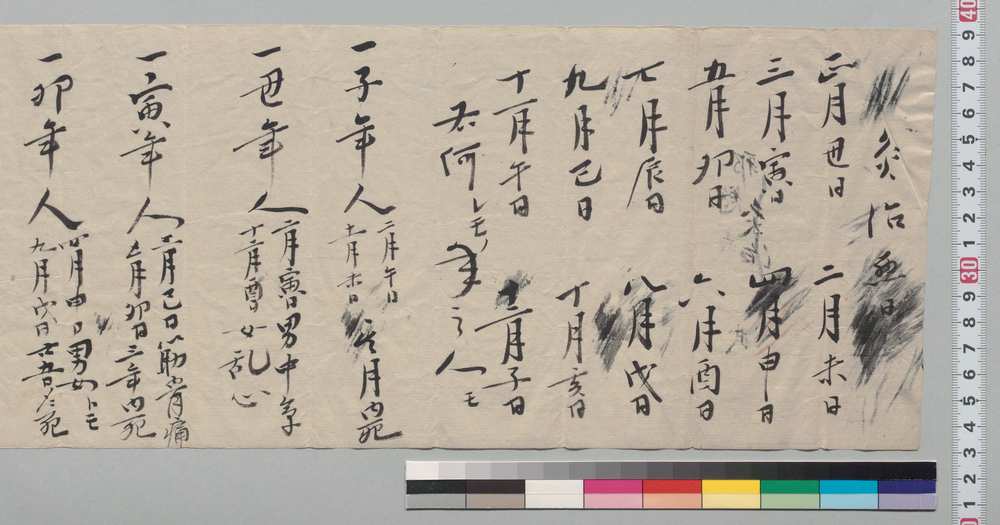 灸治悪日
正月丑日 二月未日
三月寅日 四月申日
五月卯日 六月酉日
七月辰日 八月戌日
九月巳日 十月亥日
十一月午日 十二月子日
右何レモ年之人モ
一子年人 二月午日
十一月未日 三ケ月内死
一丑年人 二月寅日男中
十二月酉日女乱心
一寅年人 二月巳日筋骨痛
五月卯日三年内死
一卯年人 四月申日男女トモ
九月戌日 死